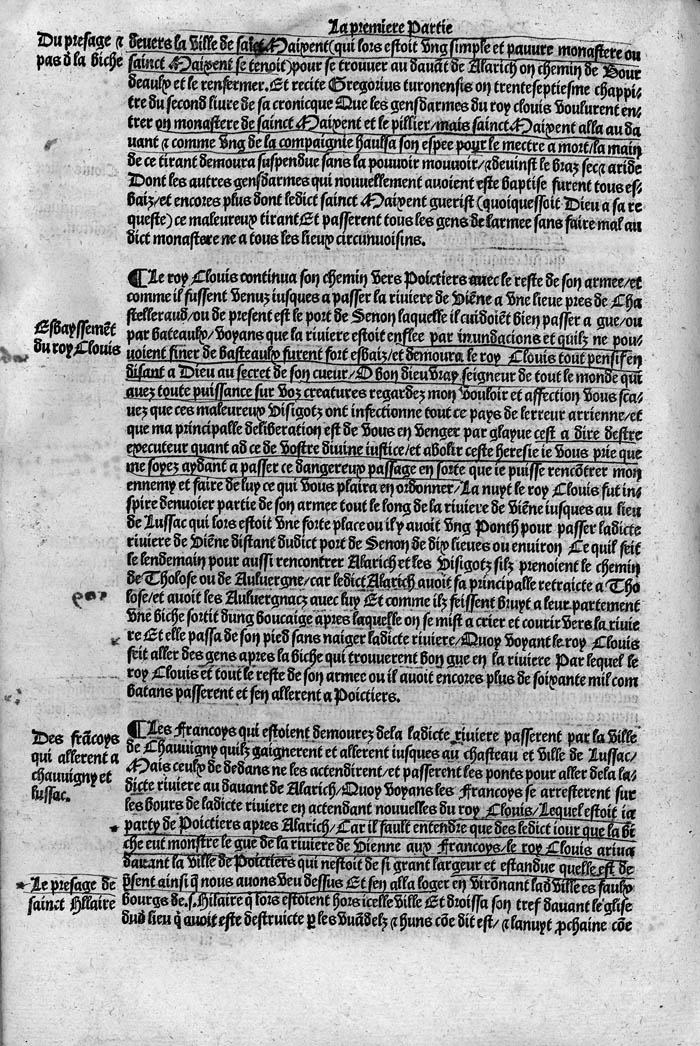 La premiere Partie
Du presage ⁊
pas d̄ la biche
devers la ville de saīct Maixent (qui lors estoit vng simple et pauure monastere ou
sainct Maixent se tenoit) pour se trouver au davāt de Alarich on chemin de Bour
deaulx et le renfermer. Et recite Gregorius turonensis on trenteseptiesme chappi⸗
tre du second livre de sa cronicque Que les gensdarmes du roy clouis voulurent en⸗
trer on monastere de sainct Maixent et le pillier/ mais sainct Maixent alla au da
vant ⁊ comme vng de la compaignie haulsa son espee pour le mectre a mort/ la main
de ce tirant demoura suspendue sans la pouvoir mouvoir/ ⁊ devinst le braz sec ⁊ aride
Dont les autres gensdarmes qui nouvellement avoient este baptise furent tous es⸗
baiz/ et encores plus dont ledict sainct Maixent guerist (quoiquessoit Dieu a sa re
queste) ce maleureux tirant Et passerent tous les gens de larmee sans faire mal au
dict monastere ne a tous les lieux circunvoisins.
¶ Le roy Clouis continua son chemin vers Poictiers avec le reste de son armee/ et
comme il fussent venuz iusques a passer la riviere de Viēne a vne lieue pres de Cha
stelleraud/ ou de present est le port de Senon laquelle il cuidoiēt bien passer a gue/ ou
Esbayssemēt
du roy Clouis
par bateaulx/ voyans que la riviere estoit enflee par inundacions et quilz ne pou⸗
uoient finer de basteaulx furent fort esbaiz/ et demoura le roy Clouis tout pensif en
disant a Dieu au secret de son cueur/ O bon dieu vray seigneur de tout le monde qui
avez toute puissance sur voz creatures regardez mon vouloir et affection Vous sca⸗
vez que ces maleureux Visigotz ont infectionne tout ce pays de lerreur arrienne/ et
que ma principalle deliberation est de vous en venger par glayue cest a dire destre
executeur quant ad ce de vostre divine iustice/ et abolir ceste heresie ie vous prie que
me soyez aydant a passer ce dangereux passage en sorte que ie puisse rencōtrer mon
ennemy et faire de luy ce qui vous plaira en ordonner/ La nuyt le roy Clouis fut in⸗
spire denvoier partie de son armee tout le long de la riviere de Viēne iusques au lieu
de Lussac qui lors estoit vne forte place ou il y avoit vng Ponth pour passer ladicte
riviere de Viēne distant dudict port de Senon de dix lieues ou environ Ce quil feit
le lendemain pour aussi rencontrer Alarich et les Visigotz silz prenoient le chemin
de Tholose ou de Auluergne/ car ledict Alarich avoit sa principalle retraicte a Tho
lose/ et avoit les Auluergnacz avec luy Et comme ilz feissent bruyt a leur partement
vne biche sortit dung boucaige apres laquelle on se mist a crier et courir vers la rivie
re Et elle passa de son pied sans naiger ladicte riviere/ Quoy voyant le roy Clouis
feit aller des gens apres la biche qui trouverent bon gue en la riviere Par lequel le
roy Clouis et tout le reste de son armee ou il avoit encores plus de soixante mil com
batans passerent et sen allerent a Poictiers.
Des frācoys
qui allerent a
chauvigny et
lussac.
¶ Les Francoys qui estoient demourez dela ladicte riviere passerent par la ville
de Chauvigny quilz gaignerent et allerent iusques au chasteau et ville de Lussac/
Mais ceulx de dedans ne les actendirent/ et passerent les ponts pour aller dela la⸗
dicte riviere au davant de Alarich/ Quoy voyans les Francoys se arresterent sur
les bours de ladicte riviere en actendant nouvelles du roy Clouis/ Lequel estoit ia
party de Poictiers apres Alarich/ Car il fault entendre que des ledict iour que la bi
che eut monstre le gue de la riviere de Vienne aux Francoys/ le roy Clouis ariva
davant la ville de Poictiers qui nestoit de si grant largeur et estandue quelle est de
Le presage de
sainct Hllaire
p̄sent ainsi q̄ nous avons veu dessus Et sen alla loger en virōnant lad ville es faulx
bourgs de .s. Hilaire q̄ lors estoient hors icelle ville Et droissa son tref davant leglise
dud lieu q̄ avoit este destruicte p̄ les vuādelz ⁊ huns cōe dit est/ ⁊ la nuyt p̄chaine cōe